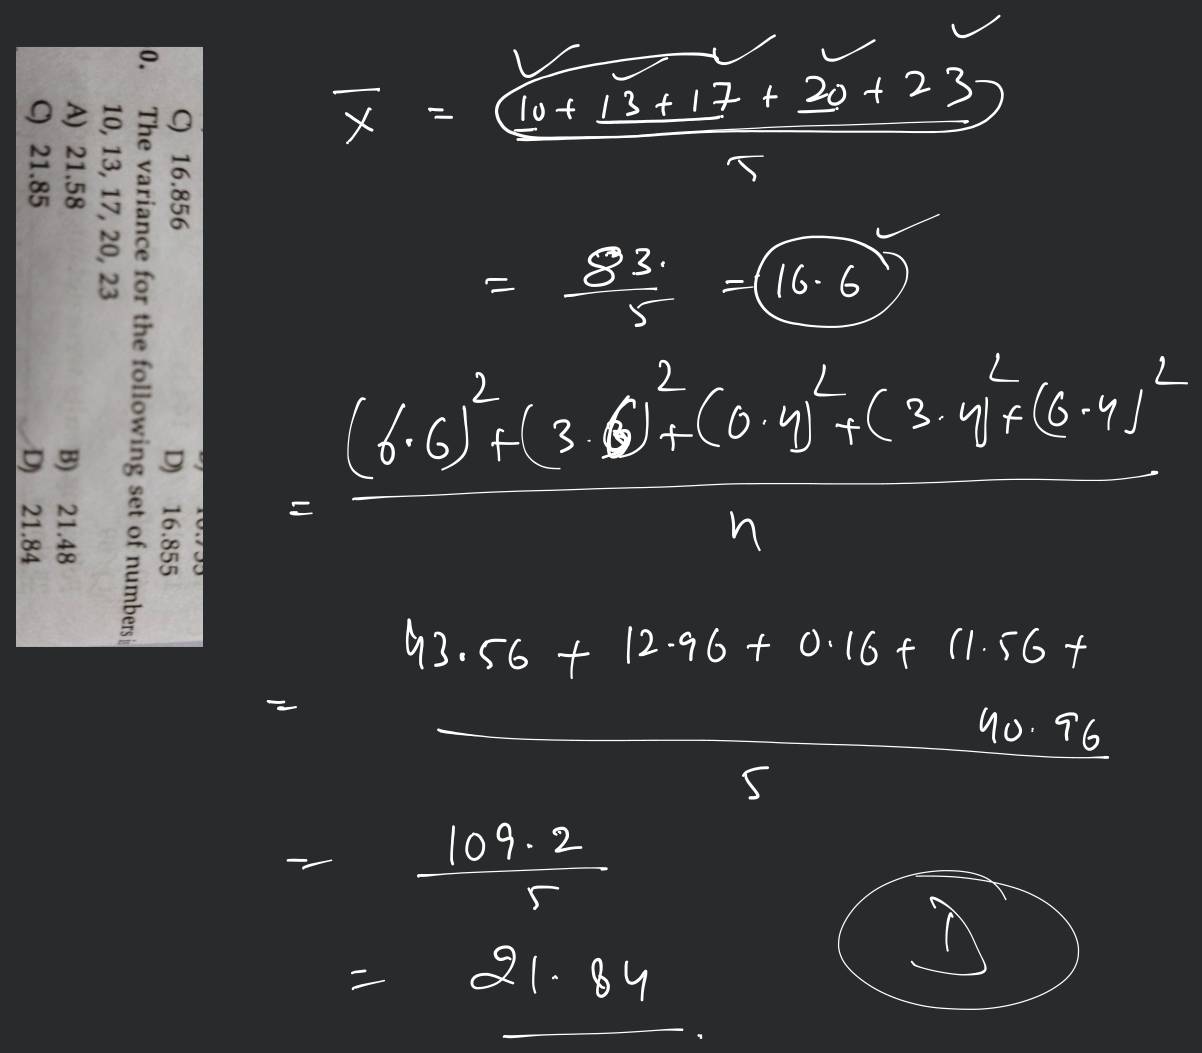 C) 16.856
D) 16.855
0. The variance for the following set of numbers i
10, 13, 17, 20, 23
A) 21.58
B) 21.48
C) 21.85
D) 21.84
x̄ = 10 + 13 + 17 + 20 + 23
5
= 83. / 5 = 16.6
= (6.6)² + (3.6)² + (0.4)² + (3.4)² + (6.4)²
n
= 43.56 + 12.96 + 0.16 + 11.56 +
40.96
5
= 109.2
5
= 21.84.
D